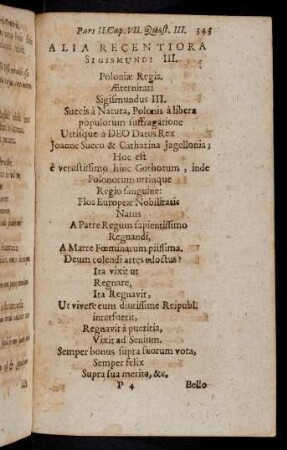 Pars II. Cap. VII. Quæst. III. 343
ALIA RECENTIORA
SIGISMUNDI III.
Poloniæ Regis.
Æternitati
Sigismundus III.
Suecis à Natura, Polonis à libera
populorum suffragatione
Utrisque à DEO Datus Rex
Joanne Sueco & Catharina Jagellonia;
Hoc est
è vetustissimo hinc Gothorum, inde
Polonorum utrinque
Regio sanguine:
Flos Europeæ Nobilitatis
Natus
A Patre Regum sapientissimo
Regnandi,
A Matre Fœminarum piissima,
Deum colendi artes edoctus?
Ita vixit ut
Regnare,
Ita Regnavit,
Ut vivere eum diutissime Reipubl.
interfuerit,
Regnavit à pueritia,
Vixit ad Senium.
Semper bonus supra suorum vota,
Semper felix
Supra sua merita, &c.
P 4 Bello